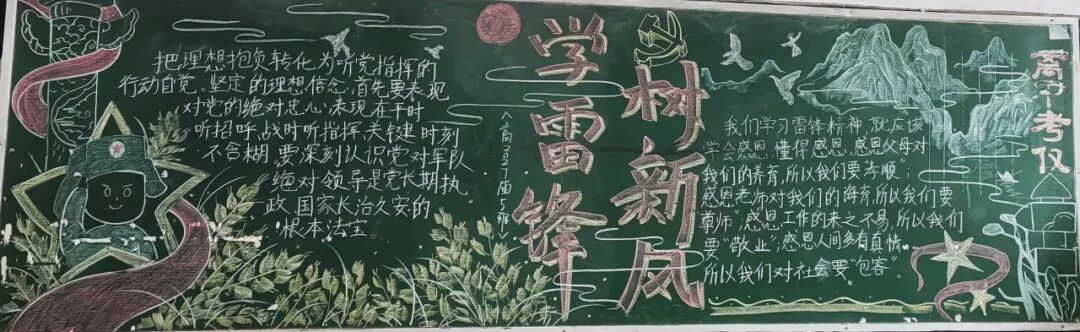 把理想抱负转化为听党指挥的
行动自觉。坚定的理想信念,首先要表现
对党的绝对忠心,表现在平时
听招呼,战时听指挥,关键时刻
不含糊,要深刻认识党对军队
绝对领导是党长期执
政,国家长治久安的
根本法宝。
学雷锋
树新风
我们学习雷锋精神,就应该
学会感恩,懂得感恩。感恩父母对
我们的养育,所以我们要“孝顺”;
感恩老师对我们的诲育,所以我们要
“尊师”,感恩工作的来之不易,所以我们
要“敬业”;感恩人间多有真情,
所以我们对社会要“包容”。